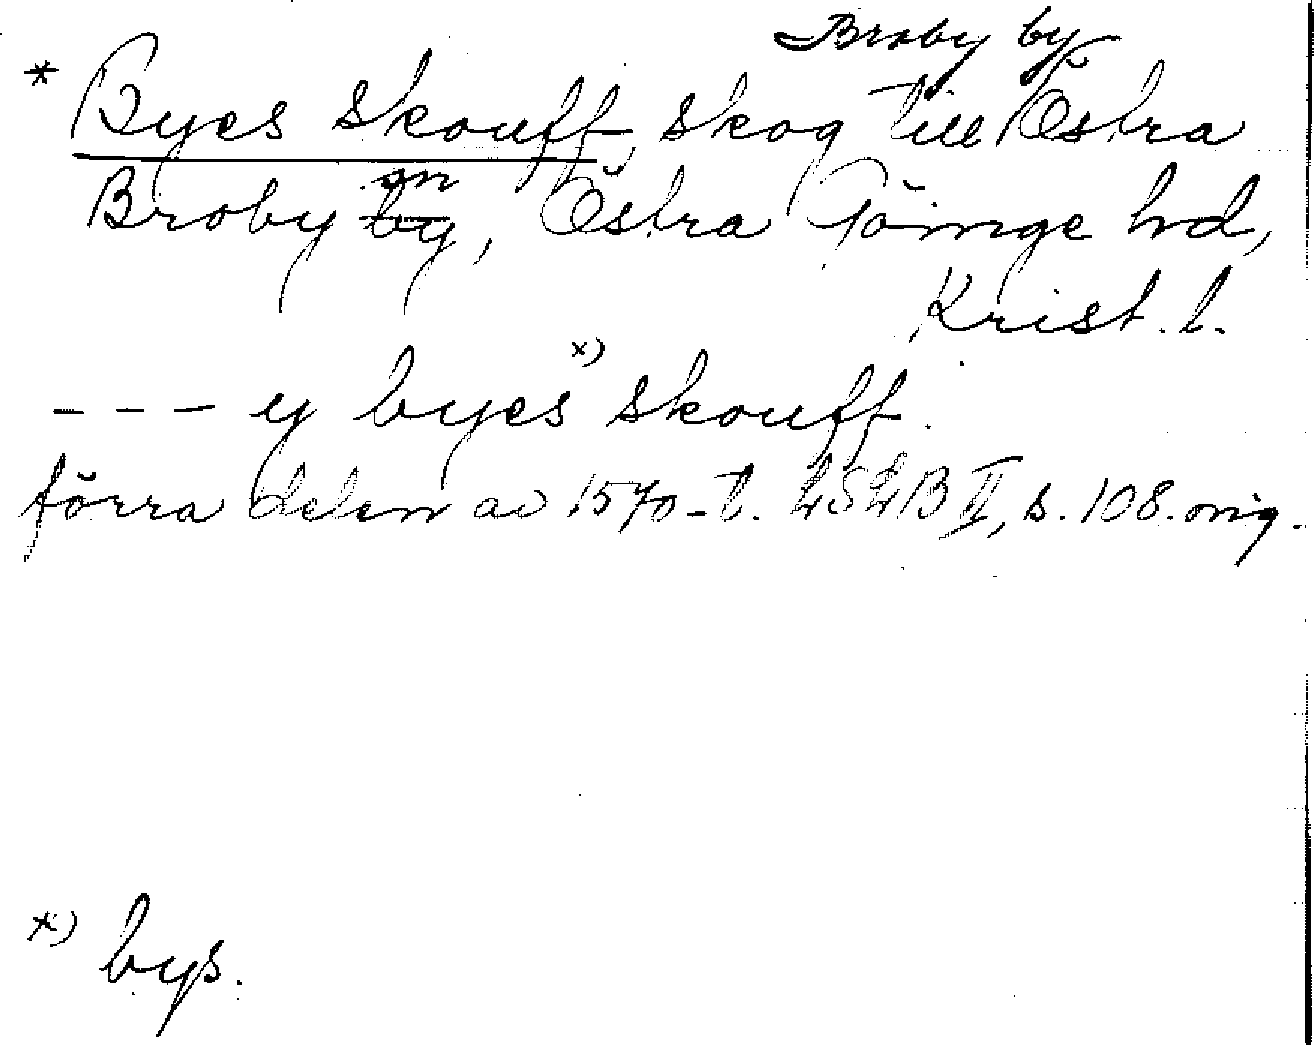 Broby by
* Byes skouff, skog till Östra
sn
Broby by, Östra Göinge hd,
Krist. l.
- - - y byes x) skouff.
förra delen av 1570-t. LSLB II, s. 108. orig.
x) bys.